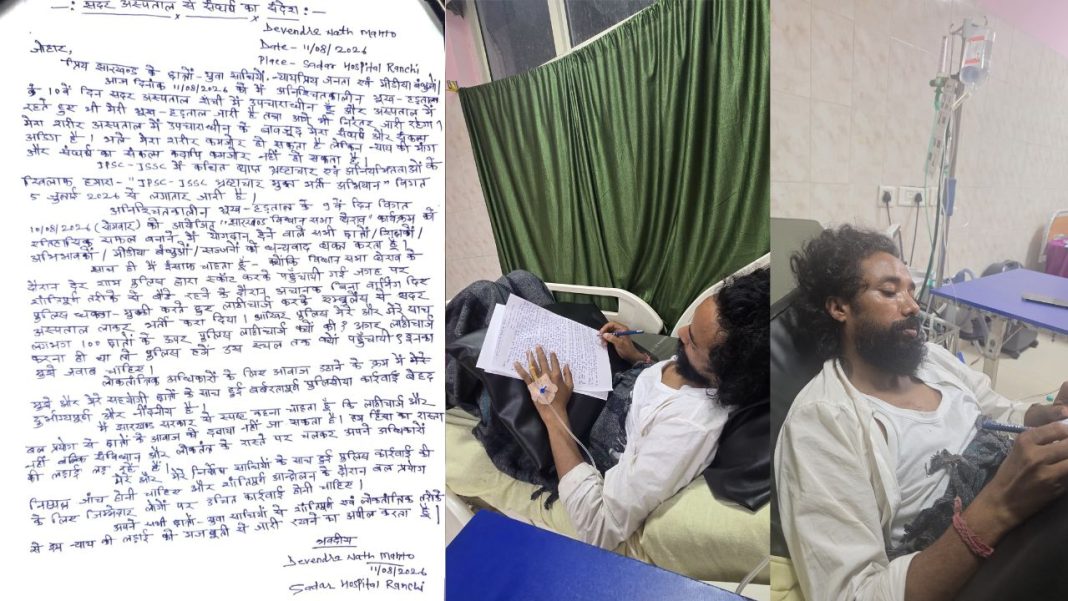 —: सदर अस्पताल से संघर्ष का संदेश :—
Devendra Nath Mahto
Date- 11/08/2026
Place- Sadar Hospital Ranchi
जोहार,
प्रिय झारखण्ड के छात्रों-युवा साथियों, न्यायप्रिय जनता एवं मीडिया बंधुओं।
आज दिनांक 11/08/2026 को मैं अनिश्चितकालीन भूख-हड़ताल
के 10वें दिन सदर अस्पताल रांची में उपचाराधीन हूँ और अस्पताल में
रहते हुए भी मेरी भूख-हड़ताल जारी है तथा आगे भी निरंतर जारी रहेगा।
मेरा शरीर अस्पताल में उपचाराधीन के बावजूद मेरा संघर्ष और संकल्प
अडिग है। भले मेरा शरीर कमजोर हो सकता है लेकिन न्याय की मांग
और संघर्ष का संकल्प कदापि कमजोर नहीं हो सकता है।
JPSC-JSSC में कथित व्याप्त भ्रष्टाचार एवं अनियमितताओं के
खिलाफ हमारा- "JPSC-JSSC भ्रष्टाचार मुक्त भर्ती अभियान" विगत
5 जुलाई 2026 से लगातार जारी है।
अनिश्चितकालीन भूख-हड़ताल के 9वें दिन विगत
10/08/2026 (सोमवार) को आयोजित "झारखण्ड विधान सभा घेराव" कार्यक्रम को
ऐतिहासिक सफल बनाने में योगदान देने वाले सभी छात्रों/शिक्षकों/
अभिभावकों/मीडिया बंधुओं/सज्जनों को धन्यवाद व्यक्त करता हूँ।
साथ ही मैं इंसाफ चाहता हूँ- क्योंकि विधान सभा घेराव के
दौरान देर शाम पुलिस द्वारा स्कॉट करके पहुँचायी गई जगह पर
शांतिपूर्ण तरीके से बैठे रहने के दौरान अचानक बिना वार्निंग दिए
पुलिस धक्का-मुक्की करते हुए लाठीचार्ज करके एम्बुलेंस से सदर
अस्पताल लाकर भर्ती करा दिया। आखिर पुलिस मेरे और मेरे साथ
लगभग 100 छात्रों के ऊपर पुलिस लाठीचार्ज क्यों की? अगर लाठीचार्ज
करना ही था तो पुलिस हमें उस स्थल तक क्यों पहुँचायी? इनका
मुझे जवाब चाहिए।
लोकतांत्रिक अधिकारों के लिए आवाज उठाने के क्रम में मेरे
मुझे और मेरे सहयोगी छात्रों के साथ हुई बर्बरतापूर्ण पुलिसिया कार्रवाई बेहद
दुर्भाग्यपूर्ण और निंदनीय है।
मैं झारखण्ड सरकार से स्पष्ट कहना चाहता हूँ कि लाठीचार्ज और
बल प्रयोग से छात्रों के आवाज को दबाया नहीं जा सकता है। हम हिंसा का रास्ता
नहीं बल्कि संविधान और लोकतंत्र के रास्ते पर चलकर अपने अधिकारों
की लड़ाई लड़ रहे हैं।
मेरे और मेरे निर्दोष साथियों के साथ हुई पुलिस कार्रवाई की
निष्पक्ष जांच होनी चाहिए और शांतिपूर्ण आन्दोलन के दौरान बल प्रयोग
के लिए जिम्मेदार लोगों पर उचित कार्रवाई होनी चाहिए।
अपने सभी छात्रों-युवा साथियों से शांतिपूर्ण एवं लोकतांत्रिक तरीके
से हम न्याय की लड़ाई को मजबूती से जारी रखने का अपील करता हूँ।
भवदीय
Devendra Nath Mahto
11/08/2026
Sadar Hospital Ranchi